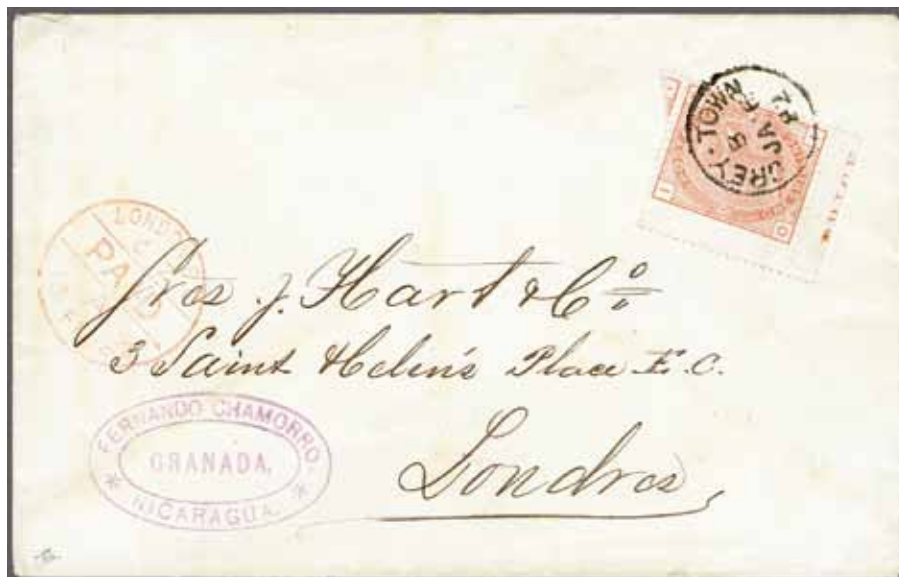 GREY-TOWN
B
JA 5
82
LOND
PA
Sres J. Hart & Co
3 Saint Helen's Place E.C.
Londres
FERNANDO CHAMORRO.
GRANADA,
* NICARAGUA. *